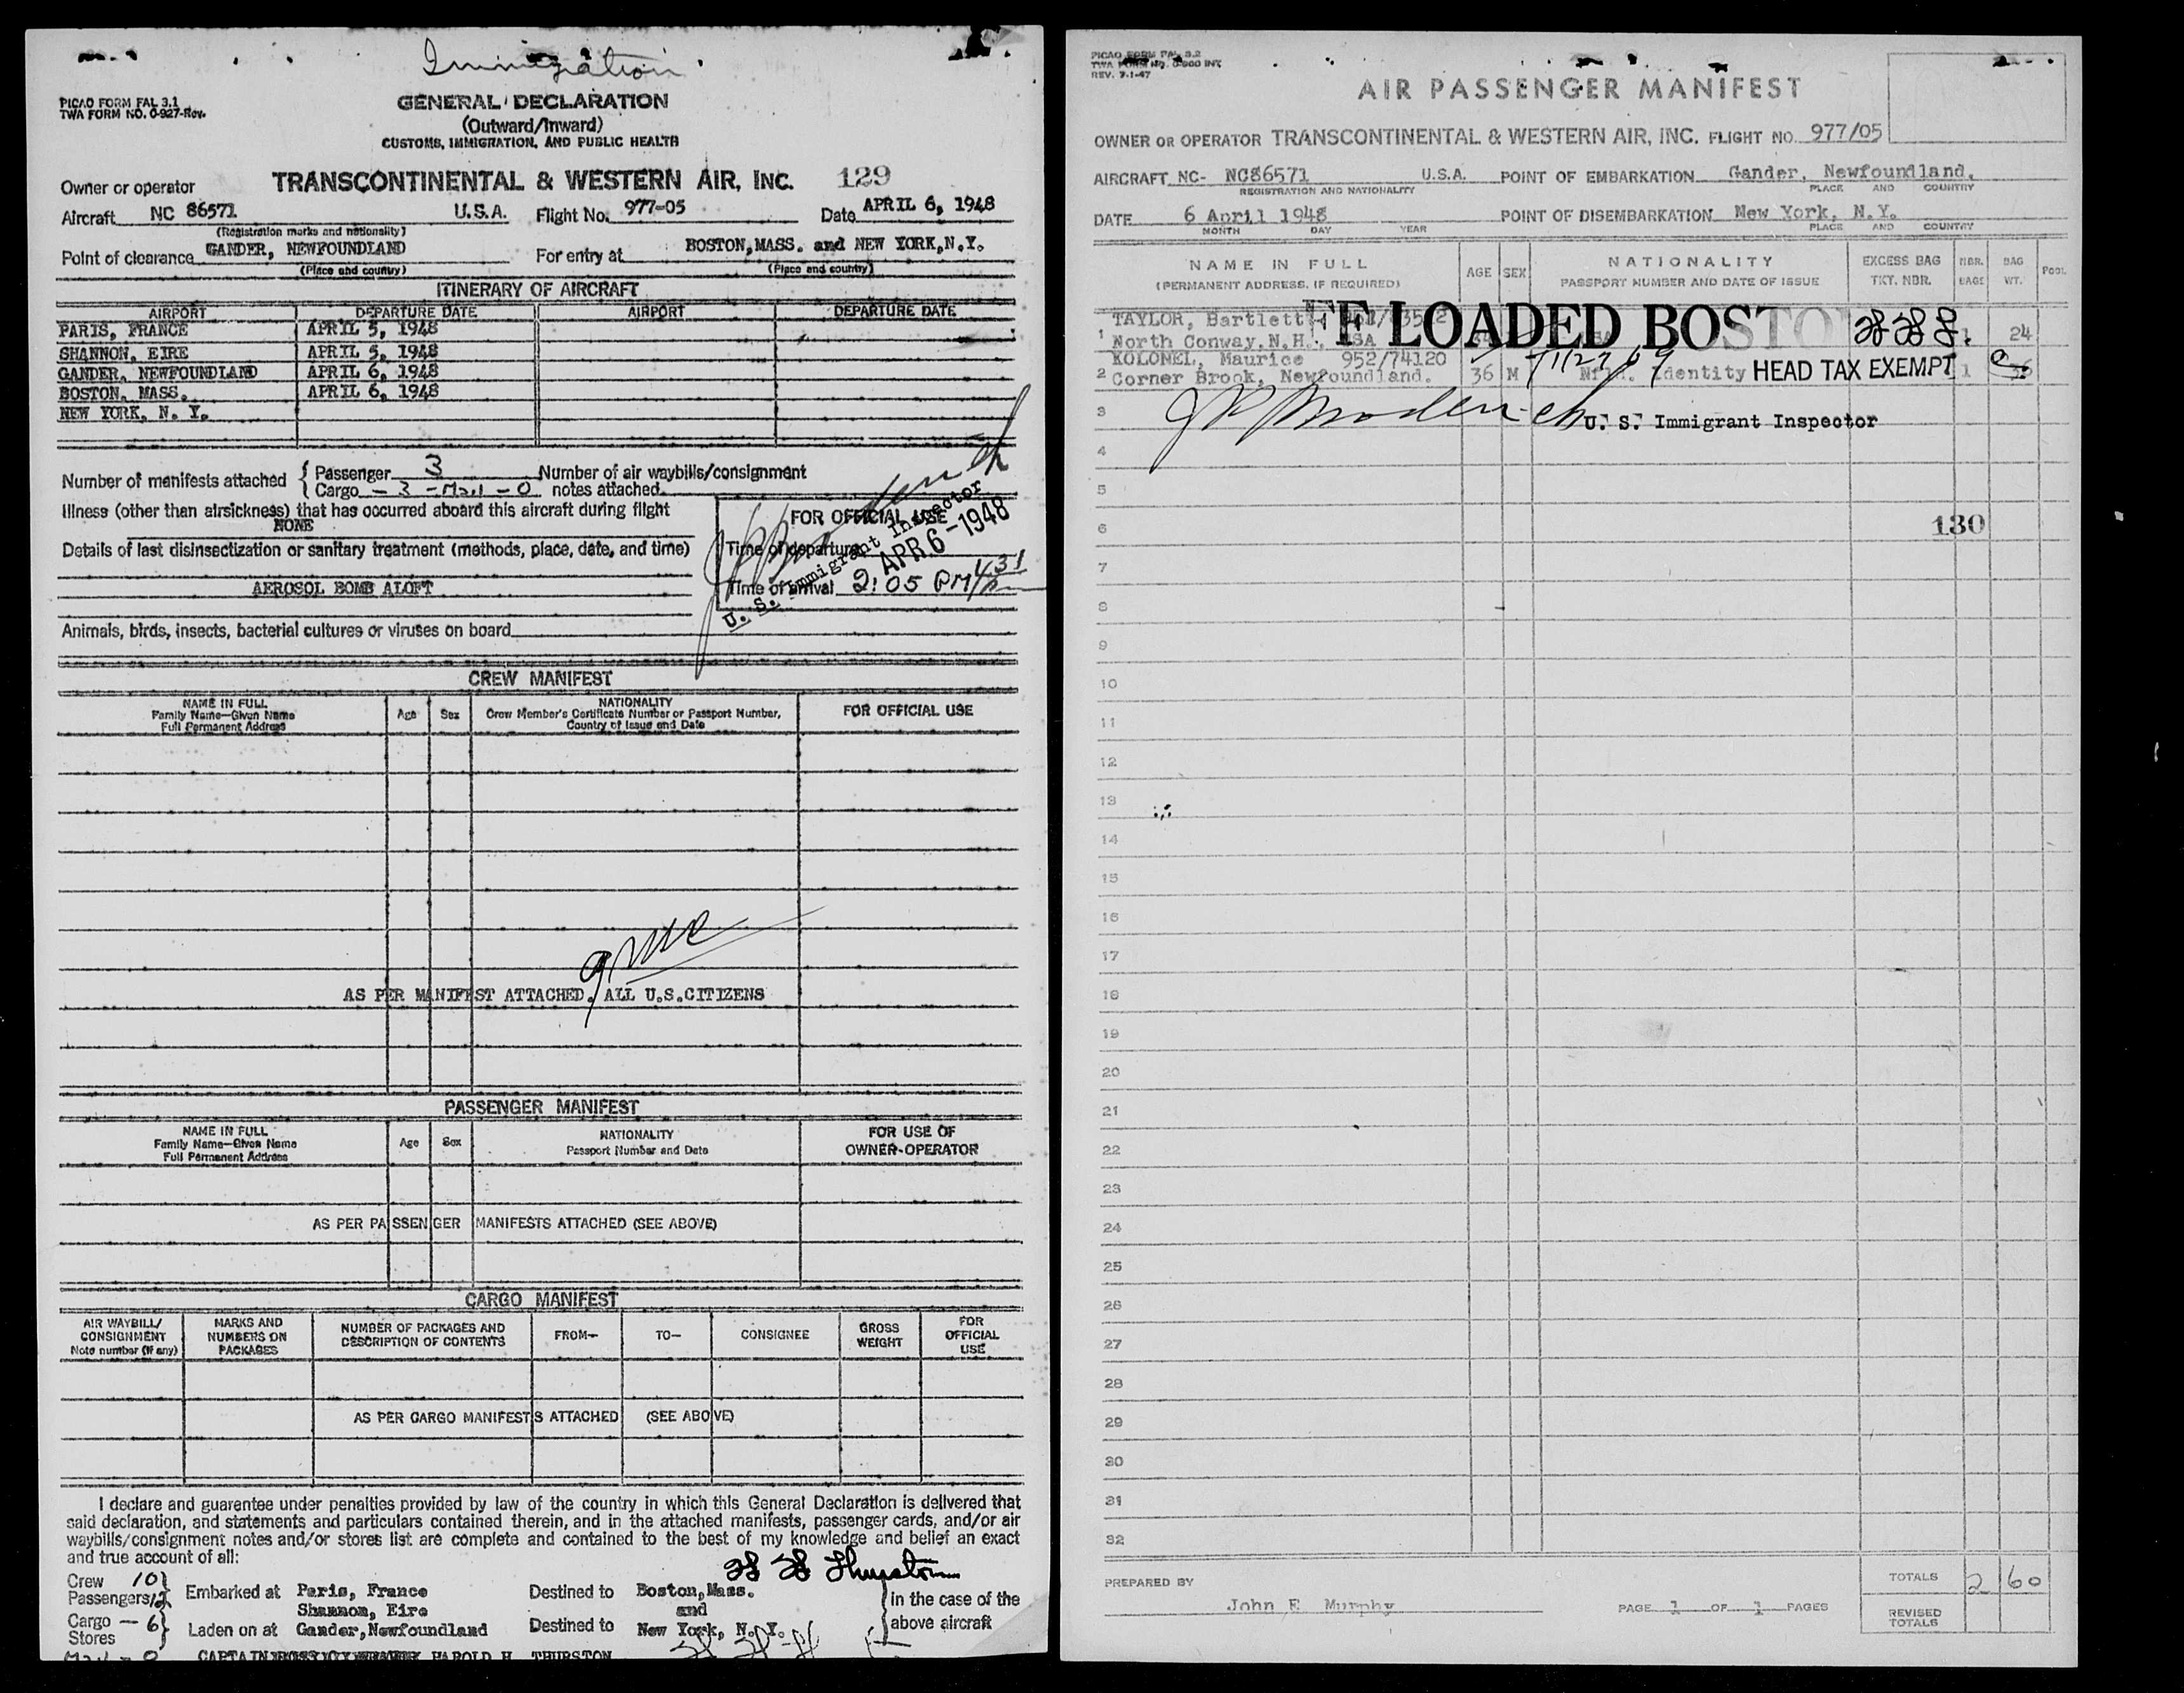 Immigration
PICAO FORM FAL 3.1
TWA FORM NO. O-927-Rev.
GENERAL DECLARATION
(Outward/Inward)
CUSTOMS, IMMIGRATION, AND PUBLIC HEALTH
Owner or operator TRANSCONTINENTAL & WESTERN AIR, INC. 129
Aircraft NC 86571 U.S.A. Flight No. 977-05 Date APRIL 6, 1948
(Registration marks and nationality)
Point of clearance GANDER, NEWFOUNDLAND For entry at BOSTON,MASS. and NEW YORK,N.Y.
(Place and country) (Place and country)
ITINERARY OF AIRCRAFT
AIRPORT DEPARTURE DATE AIRPORT DEPARTURE DATE
PARIS, FRANCE APRIL 5, 1948
SHANNON, EIRE APRIL 5, 1948
GANDER, NEWFOUNDLAND APRIL 6, 1948
BOSTON, MASS. APRIL 6, 1948
NEW YORK, N. Y.
Number of manifests attached { Passenger 3 Number of air waybills/consignment
Cargo - 3 - Mail - 0 notes attached
Illness (other than airsickness) that has occurred aboard this aircraft during flight
NONE
FOR OFFICIAL USE
Details of last disinsectization or sanitary treatment (methods, place, date, and time)
Time of departure
U. S. Immigrant Inspector
APR 6-1948
AEROSOL BOMB ALOFT
Time of arrival 2:05 PM 4:31
Animals, birds, insects, bacterial cultures or viruses on board
CREW MANIFEST
NAME IN FULL
Family Name—Given Name
Full Permanent Address
Age Sex
NATIONALITY
Crew Member's Certificate Number or Passport Number,
Country of Issue and Date
FOR OFFICIAL USE
AS PER MANIFEST ATTACHED. ALL U.S.CITIZENS
PASSENGER MANIFEST
NAME IN FULL
Family Name—Given Name
Full Permanent Address
Age Sex
NATIONALITY
Passport Number and Date
FOR USE OF
OWNER-OPERATOR
AS PER PASSENGER MANIFESTS ATTACHED (SEE ABOVE)
CARGO MANIFEST
AIR WAYBILL/
CONSIGNMENT
Note number (if any)
MARKS AND
NUMBERS ON
PACKAGES
NUMBER OF PACKAGES AND
DESCRIPTION OF CONTENTS
FROM—
TO—
CONSIGNEE
GROSS
WEIGHT
FOR
OFFICIAL
USE
AS PER CARGO MANIFESTS ATTACHED (SEE ABOVE)
I declare and guarantee under penalties provided by law of the country in which this General Declaration is delivered that
said declaration, and statements and particulars contained therein, and in the attached manifests, passenger cards, and/or air
waybills/consignment notes and/or stores list are complete and contained to the best of my knowledge and belief an exact
and true account of all:
H H Thurston
Crew 10 }
Passengers 12 } Embarked at Paris, France Destined to Boston,Mass.
Shannon, Eire and
Cargo - 6 } Laden on at Gander,Newfoundland Destined to New York, N. Y.
Stores
in the case of the
above aircraft
CAPTAIN HAROLD H. THURSTON
PICAO FORM FAL 3.2
REV. 7-1-47
AIR PASSENGER MANIFEST
OWNER OR OPERATOR TRANSCONTINENTAL & WESTERN AIR, INC. FLIGHT NO. 977/05
AIRCRAFT NC- NC86571 U.S.A. POINT OF EMBARKATION Gander, Newfoundland.
REGISTRATION AND NATIONALITY PLACE AND COUNTRY
DATE 6 April 1948 POINT OF DISEMBARKATION New York, N.Y.
MONTH DAY YEAR PLACE AND COUNTRY
NAME IN FULL
(PERMANENT ADDRESS, IF REQUIRED)
AGE SEX
NATIONALITY
PASSPORT NUMBER AND DATE OF ISSUE
EXCESS BAG
TKT. NBR.
NBR.
BAGS
BAG
WT.
POOL
TAYLOR, Bartlett
FF LOADED BOSTON
1 North Conway, N.H., USA 1 24
KOLONEL, Maurice 952/74120
2 Corner Brook, Newfoundland. 36 M Nfld. Identity HEAD TAX EXEMPT 1
3 U. S. Immigrant Inspector
4
5
6 130
7
8
9
10
11
12
13
14
15
16
17
18
19
20
21
22
23
24
25
26
27
28
29
30
31
32
PREPARED BY TOTALS 2 60
John F Murphy PAGE 1 OF 1 PAGES
REVISED
TOTALS